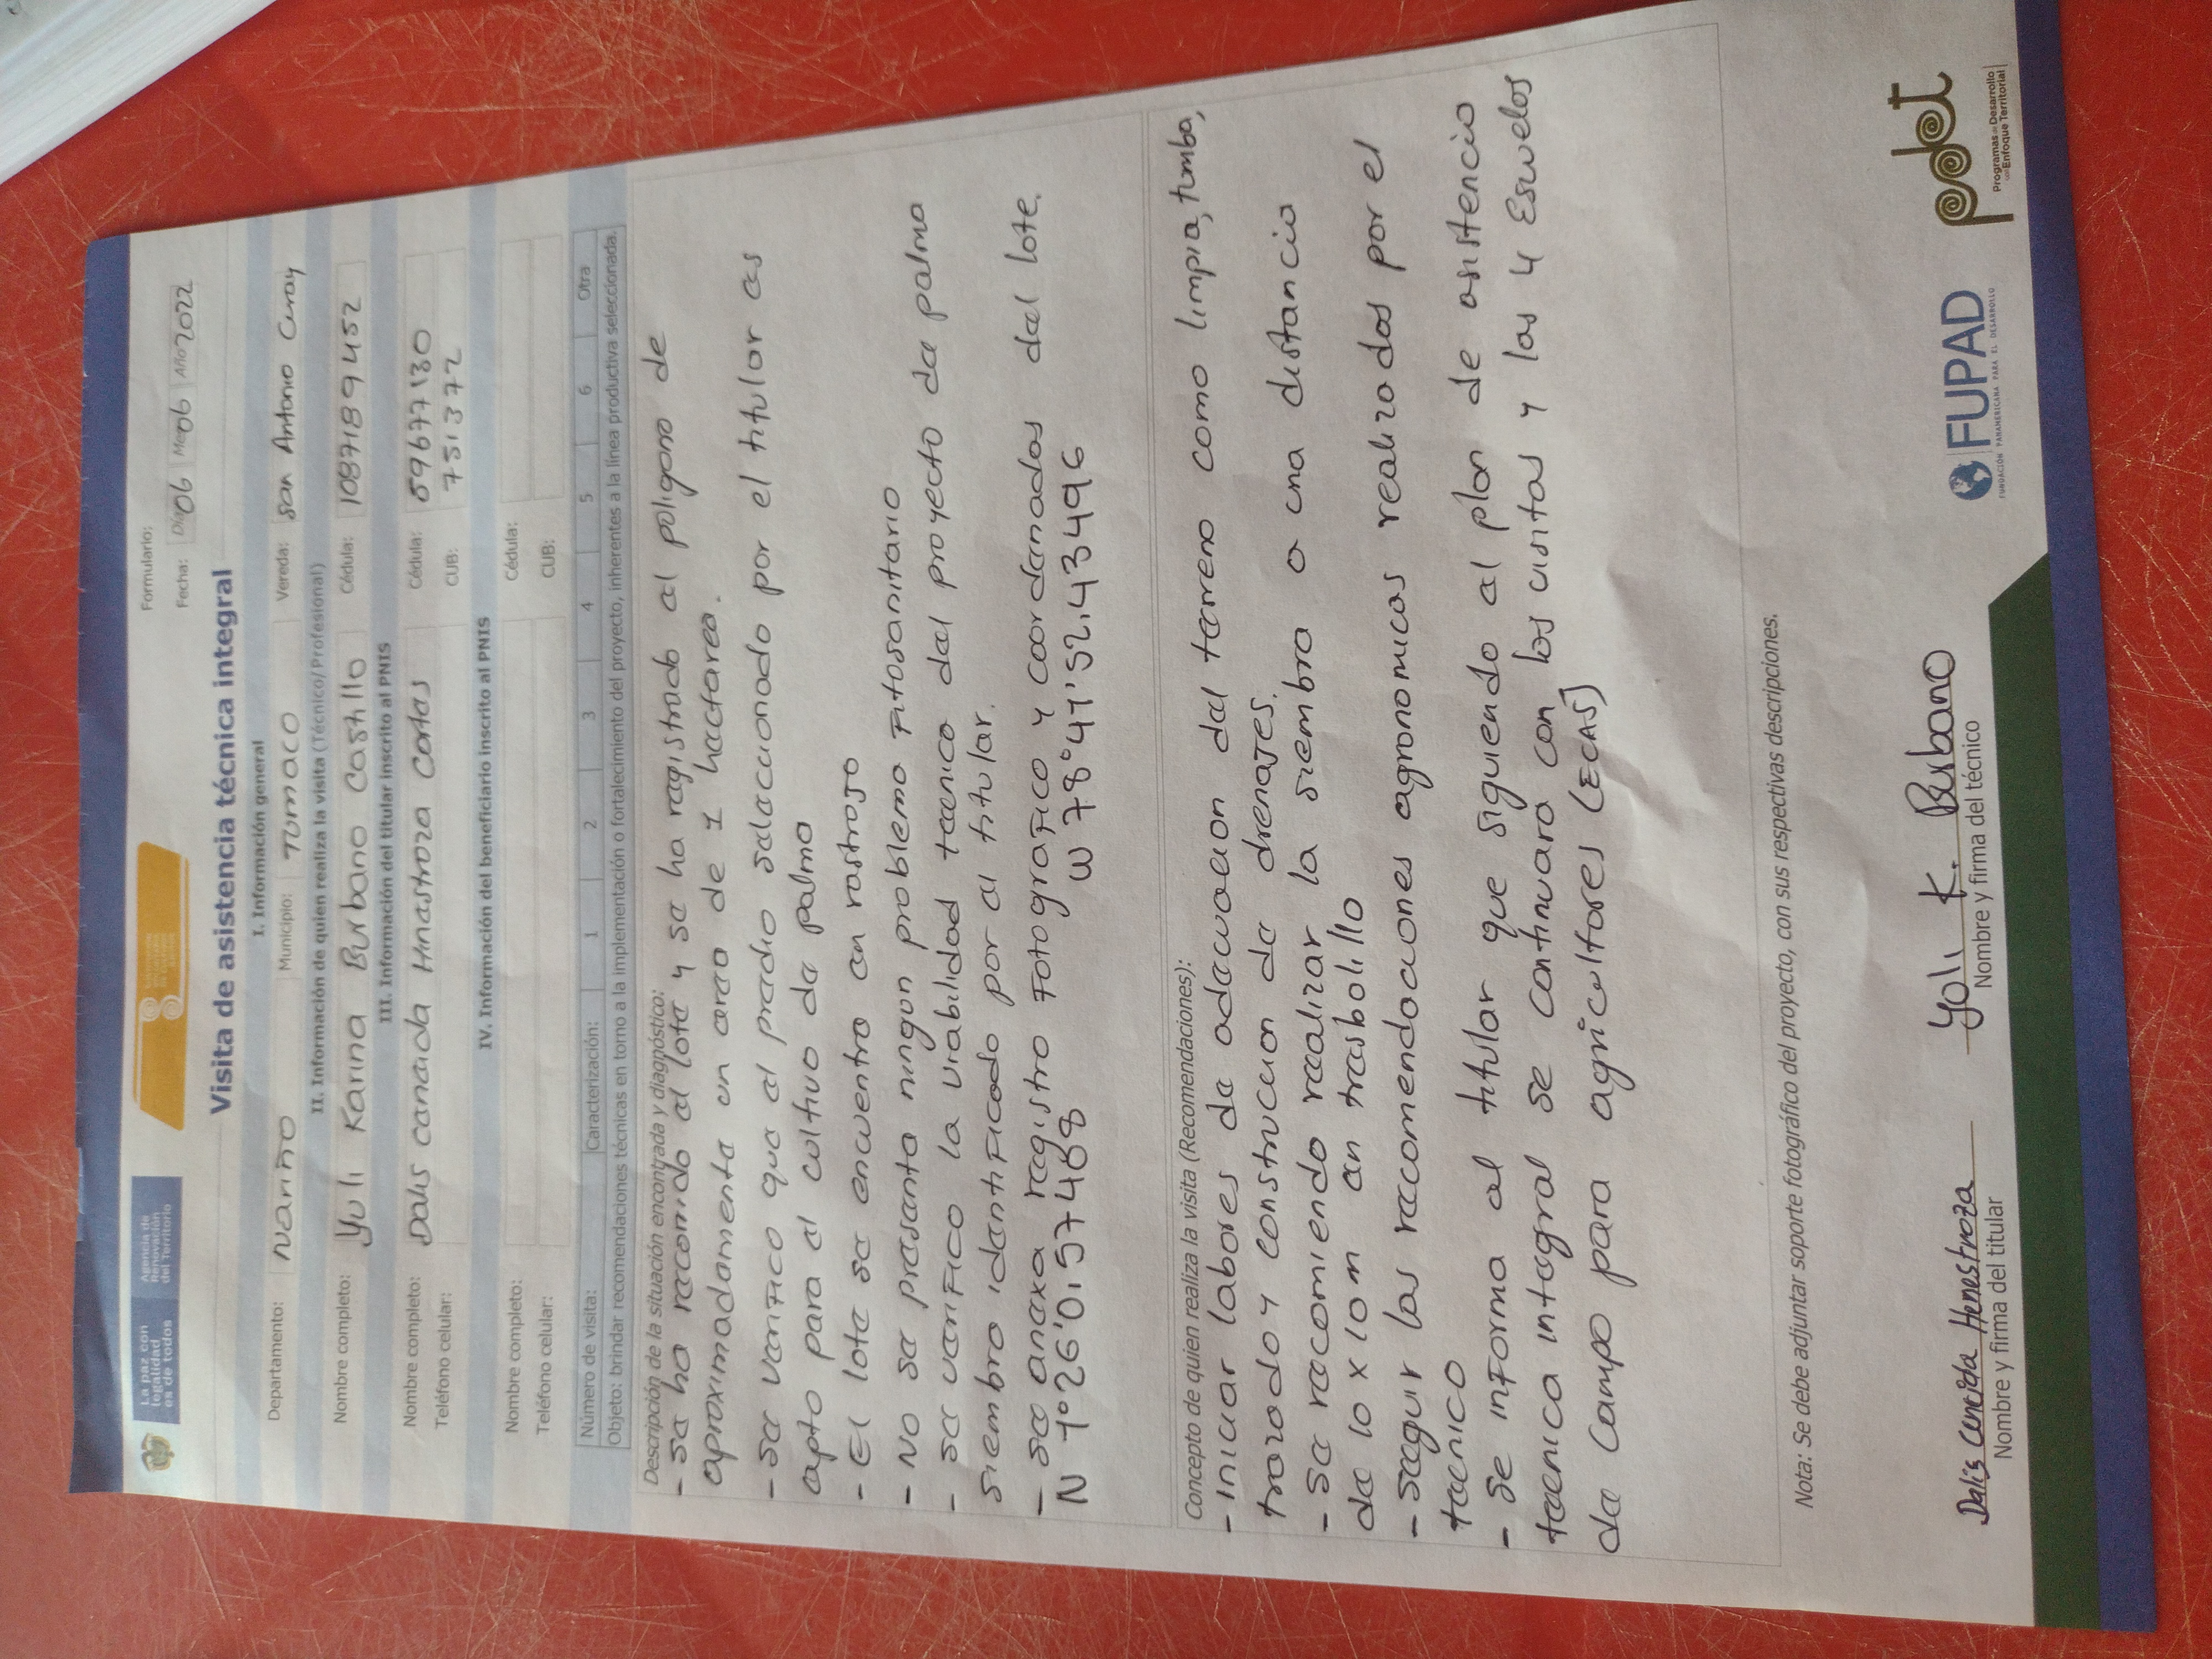 La paz con
legalidad
es de todos
Agencia de
Renovación
del Territorio
Formulario:
Fecha: Día 06 Mes 06 Año 2022
Visita de asistencia técnica integral
I. Información general
Departamento: Nariño Municipio: Tumaco Vereda: San Antonio Curay
II. Información de quien realiza la visita (Técnico/Profesional)
Nombre completo: Yuli Karina Burbano Castillo Cédula: 1087189452
III. Información del titular inscrito al PNIS
Nombre completo: Dalis Caneida Hinastroza Cortas Cédula: 59677130
Teléfono celular: CUB: 751372
IV. Información del beneficiario inscrito al PNIS
Nombre completo: Cédula:
Teléfono celular: CUB:
Número de visita: Caracterización: 1 2 3 4 5 6 Otra
Objeto: brindar recomendaciones técnicas en torno a la implementación o fortalecimiento del proyecto, inherentes a la línea productiva seleccionada.
Descripción de la situación encontrada y diagnóstico:
- se ha recorrido el lote y se ha registrado el poligono de
aproximadamente un area de 1 hactarea.
- se verifico que el predio selaccionado por el titular es
apto para el cultivo de palma
- El lote se encuentra en rastrojo
- No se presenta ningun problema Fitosanitario
- se verifico la viabilidad tecnica del proyecto de palma
siembra identificado por el titular.
- se anexa registro Fotografico y coordenadas del lote.
N 1°26'0,157468 W 78°41'52,43496
Concepto de quien realiza la visita (Recomendaciones):
- Iniciar labores de adecuacion del terreno como limpia, tumba,
trazado y construccion de drenajes.
- se recomienda realizar la siembra a una distancia
de 10 x 10 m en tresbolillo
- seguir las recomendaciones agronomicas realizadas por el
tecnico
- se informa al titular que siguiendo el plan de asistencia
tecnica integral se continuara con las visitas y las 4 Escuelas
de Campo para agricultores (ECAS)
Nota: Se debe adjuntar soporte fotográfico del proyecto, con sus respectivas descripciones.
Dalis Caneida Henestroza Yuli K. Burbano
Nombre y firma del titular Nombre y firma del técnico
FUPAD
FUNDACIÓN PANAMERICANA PARA EL DESARROLLO
pdet
Programas de Desarrollo
con Enfoque Territorial